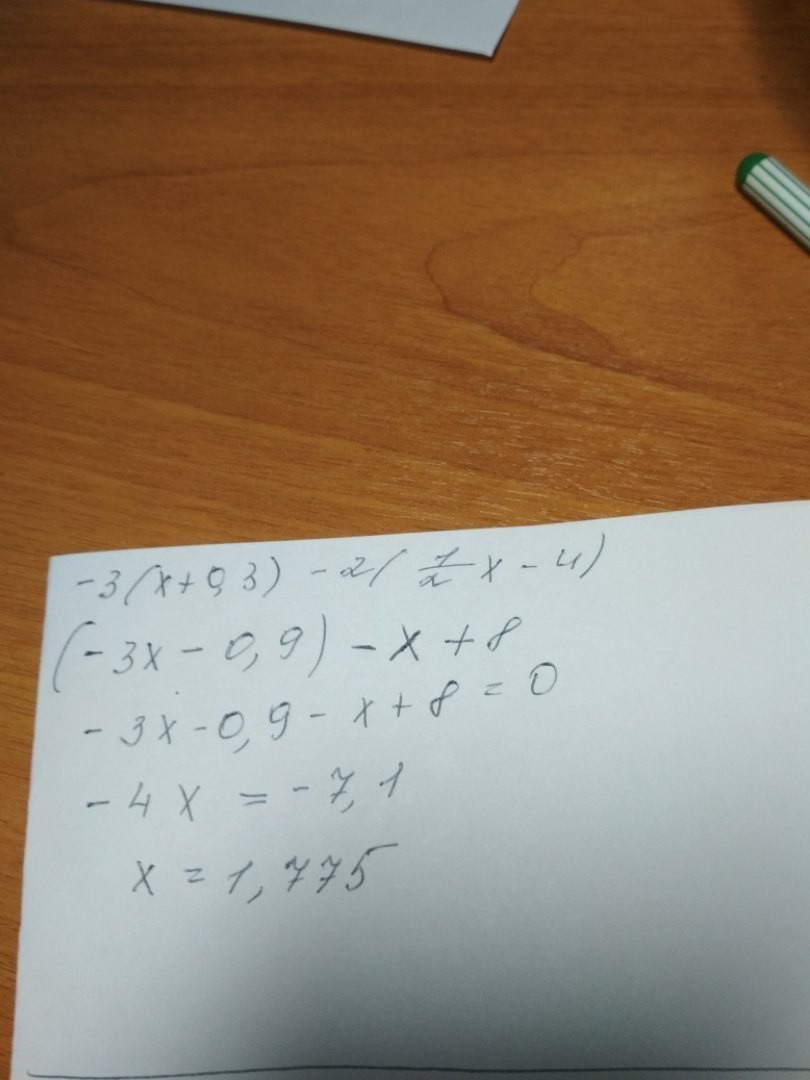 -3(x+0,3) -2(1/2 x - 4)
(-3x - 0,9) - x + 8
-3x-0,9 - x + 8 = 0
-4x = -7,1
x = 1,775